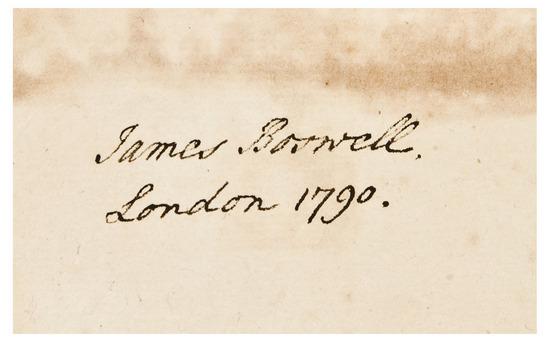 James Boswell.
London 1790.